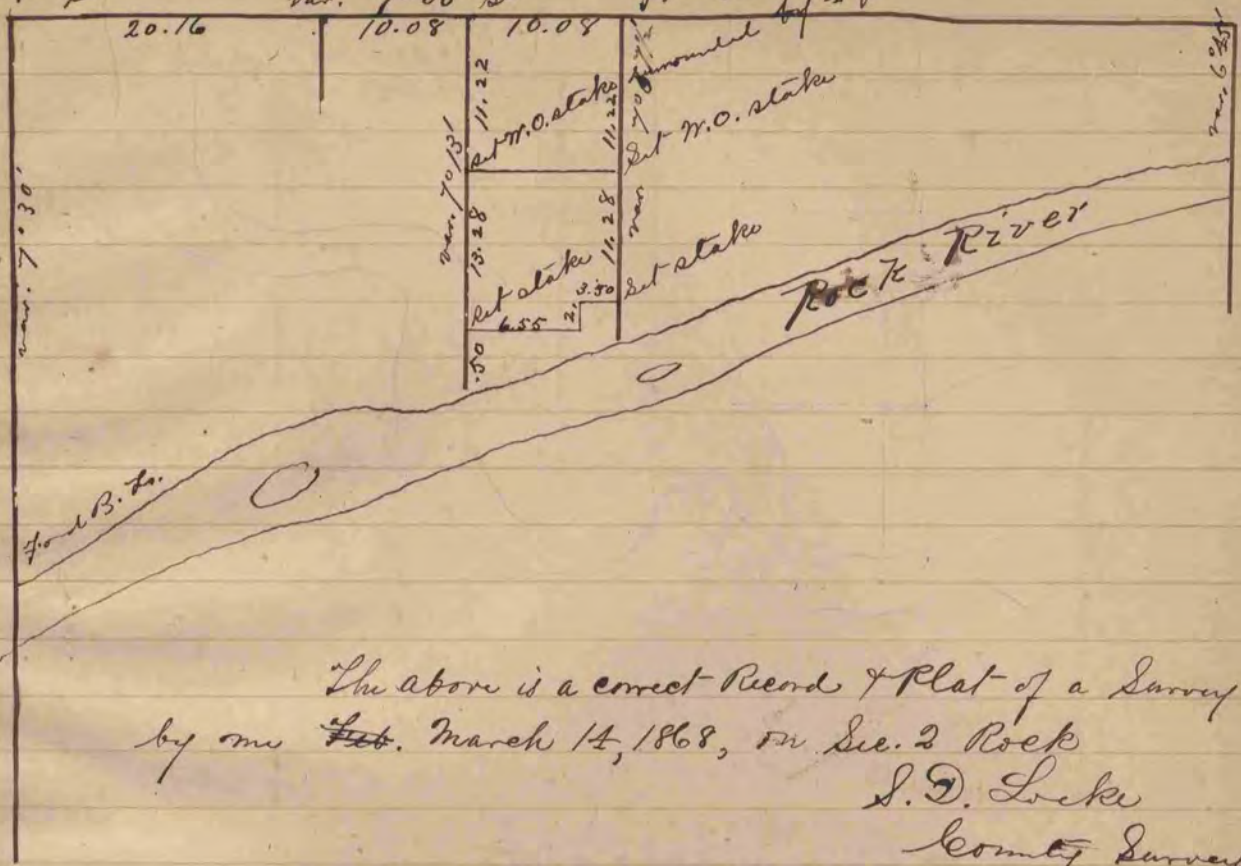 20.16 10.08 10.08
var. 7° 30'
var. 7° 13'
11.22
Set W.O. stake
11.22
var. 7° 7 1/2'
surrounded by
Set W.O. stake
var. 6° 45'
13.28
Set stake
11.28
3.50
Set stake
2,
6.55
.50
Rock River
The above is a correct Record & Plat of a Survey
by me Feb. March 14, 1868, on Sec. 2 Rock
S. D. Locke
County Survey